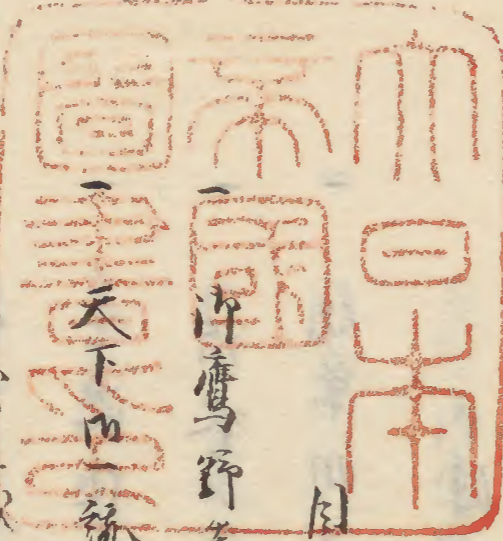 大日本
帝國
圖書之印
目
一 御鷹野
一 天下御一統